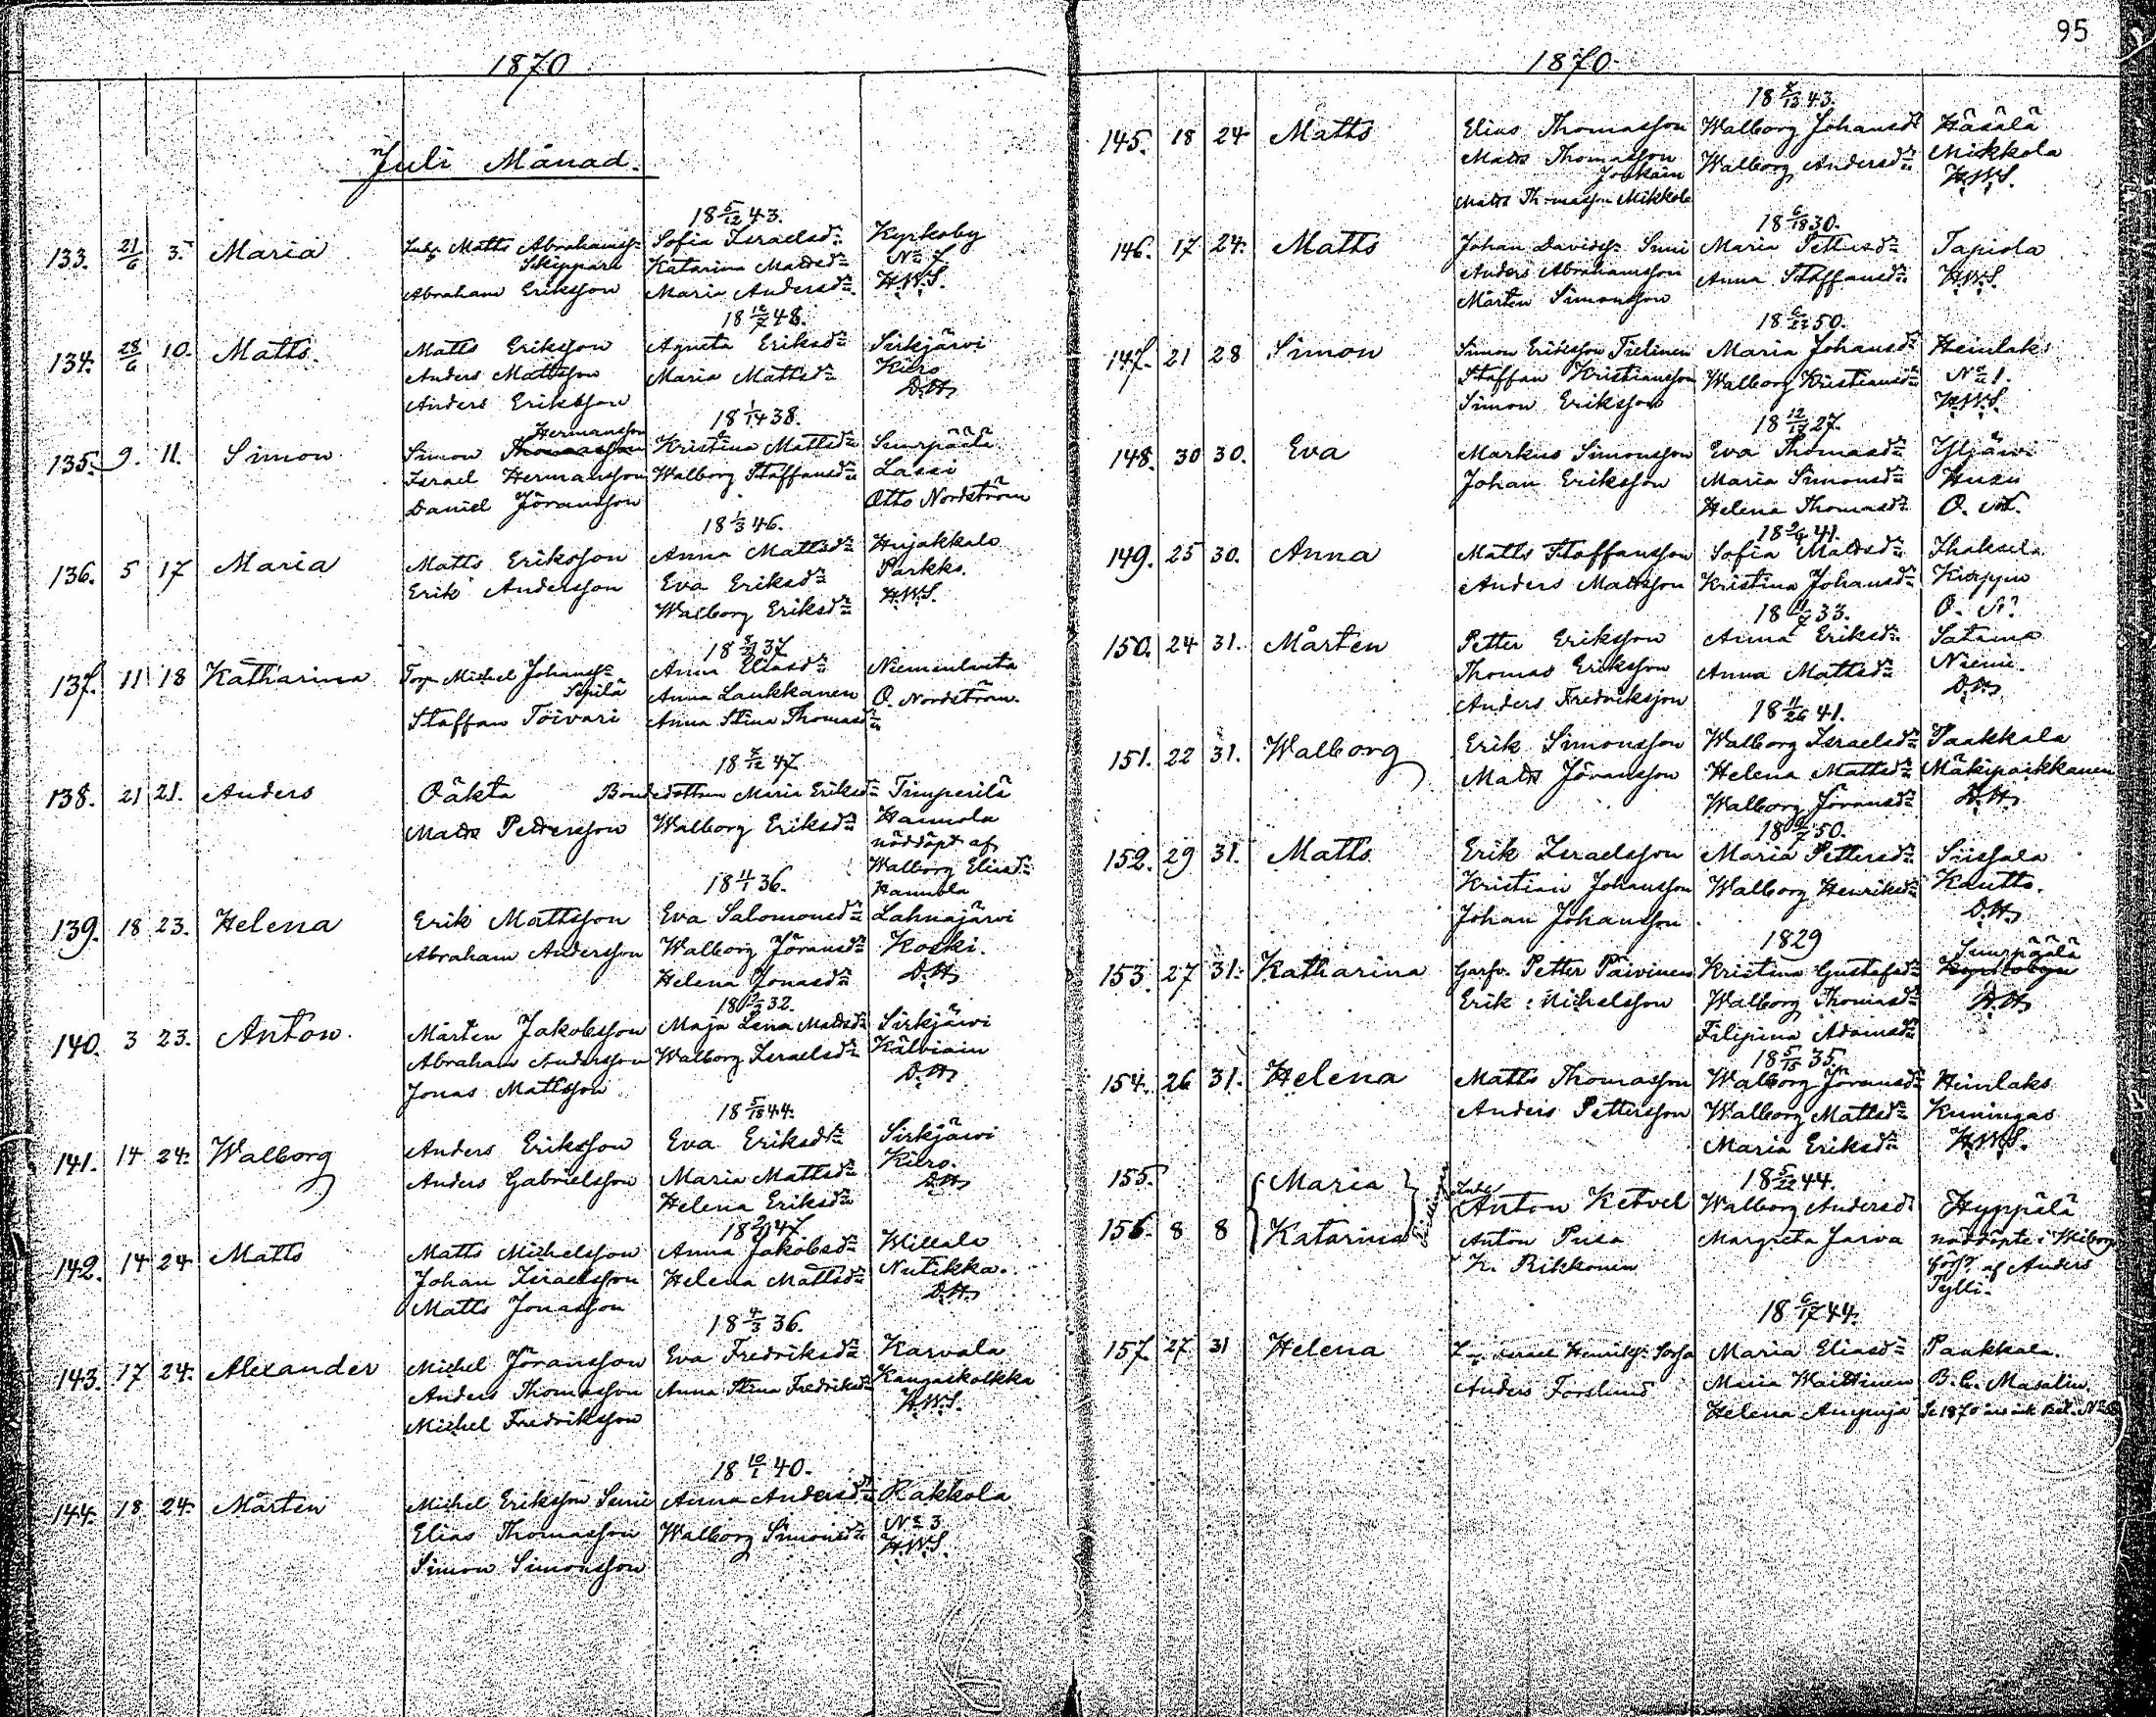 95
1870
Juli Månad.
18 5/12 43.
133. 21/6 3. Maria Inh. Matts Abrahamss: Sofia Israelsd: Kyrkoby
Skippari Katarina Mattsd: No 7
Abraham Eriksson Maria Andersd: H.W.S.
18 12/7 48.
134. 28/6 10. Matts. Matts Eriksson Agneta Eriksd: Sirkjärvi
Anders Mattsson Maria Mattsd: Kiiro
Anders Eriksson D.H.
18 1/14 38.
Hermansson
135. 9. 11. Simon Simon Thomasson Kristina Mattsd: Suurpäälä
Israel Hermansson Walborg Staffansd: Lassi
Daniel Jöransson Otto Nordström
18 1/3 46.
136. 5 17 Maria Matts Eriksson Anna Mattsd: Hujakkala
Erik Andersson Eva Eriksd: Parkko.
Walborg Eriksd: H.W.S.
137. 11 18 Katharina Torp. Michel Johanss: Anna Eliasd: Niemenlauta
Sipilä Anna Laukkanen O. Nordström.
Staffan Toivari Anna Stina Thomasd:
18 7/12 47
138. 21 21. Anders Oäkta Bondedottern Maria Eriksd: Timperilä
Matts Pettersson Walborg Eriksd: Hannola
nöddöpt af
Walborg Eliasd:
18 4/1 36. Hannola
139. 18 23. Helena Erik Mattsson Eva Salomonsd: Lahnajärvi
Abraham Andersson Walborg Jöransd: Koski.
Helena Jonasd: D.H.
140. 3 23. Anton. Mårten Jakobsson Maja Lena Mattsd: Sirkjärvi
Abraham Andersson Walborg Israelsd: Kälviäin
Jonas Mattsson D.H.
18 5/18 44.
141. 14 24. Walborg Anders Eriksson Eva Eriksd: Sirkjärvi
Anders Gabrielsson Maria Mattsd: Kiiro.
Helena Eriksd: D.H.
142. 14 24 Matts Matts Michelsson Anna Jakobsd: Willala
Johan Israelsson Helena Mattsd: Nutikka.
Matts Jonasson D.H.
18 4/3 36.
143. 17 24. Alexander Michel Jöransson Eva Fredriksd: Karvala
Anders Thomasson Anna Stina Fredriksd: Kangaskolkka
Michel Fredriksson H.W.S.
18 10/1 40.
144. 18 24. Mårten Michel Eriksson Suni Anna Andersd: Rakkola
Elias Thomasson Walborg Simonsd: No 3
Simon Simonsson H.W.S.
1870.
18 7/13 43.
145. 18 24 Matts Elias Thomasson Walborg Johansd: Häsälä
Matts Thomasson Walborg Andersd: Mikkola
Joukain H.W.S.
Matts Thomasson Mikkola
18 6/18 30.
146. 17 24. Matts Johan Davidss: Suni Maria Pettersd: Tapiola
Anders Abrahamsson Anna Staffansd: H.W.S.
Mårten Simonsson
18 6/22 50.
147. 21 28 Simon Simon Eriksson Tielinen Maria Johansd: Heinlaks
Staffan Kristiansson Walborg Kristiansd: No 1.
Simon Eriksson H.W.S.
18 12/17 27.
148. 30 30. Eva Markus Simonsson Eva Thomasd: Yljärvi
Johan Eriksson Maria Simonsd: Husu
Helena Thomasd: O. N.
149. 25 30. Anna Matts Staffansson Sofia Mattsd: Ihaksela
Anders Mattsson Kristina Johansd: Kirppu
O. N.
150. 24 31. Mårten Petter Eriksson Anna Eriksd: Satama
Thomas Eriksson Anna Mattsd: Niemi.
Anders Fredriksson D.H.
18 11/26 41.
151. 22 31. Walborg Erik Simonsson Walborg Israelsd: Paakkala
Matts Jöransson Helena Mattsd: Mäkipaakkanen
Walborg Jöransd: D.H.
152. 29 31. Matts. Erik Israelsson Maria Pettersd: Siissala
Kristian Johansson Walborg Henriksd: Kautto.
Johan Johansson D.H.
1829 Suurpäälä
153. 27 31. Katharina Garfv. Petter Päivinen Kristina Gustafsd: Kyrkobyn
Erik Michelsson Walborg Thomasd: D.H.
Filipina Adamsd:
18 5/15 35.
154. 26 31. Helena Matts Thomasson Walborg Jöransd: Heinlaks
Anders Pettersson Walborg Mattsd: Kuningas
Maria Eriksd: H.W.S.
18 5/22 44.
155. Maria Inh. Anton Ketvel Walborg Andersd: Hyppälä
156. 8 8 Katarina Tvillingar Anton Pusa Margreta Jarva nöddöpte i Wiborg
K. Rikkonen af Anders
Tylli.
18 6/17 44.
157 27 31 Helena Israel Henrikss: Sorsa Maria Eliasd: Paakkala.
Anders Forslund Maria Waittinen B. C. Masalin.
Helena Ampuja